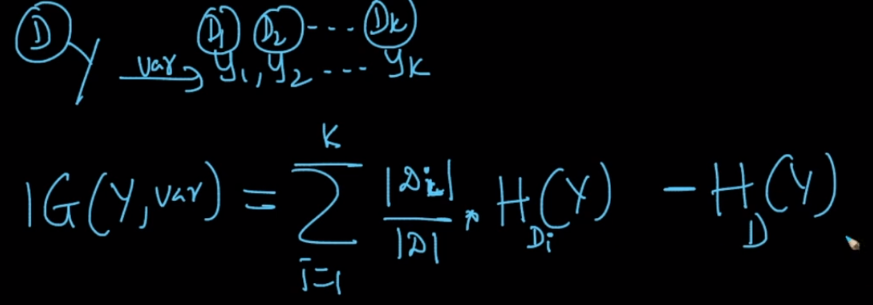 D Y var → D1 D2 --- Dk
y1, y2 --- yk
IG(Y, var) = Σ_{i=1}^{K} |Di|/|D| * H_{Di}(Y) - H_D(Y)